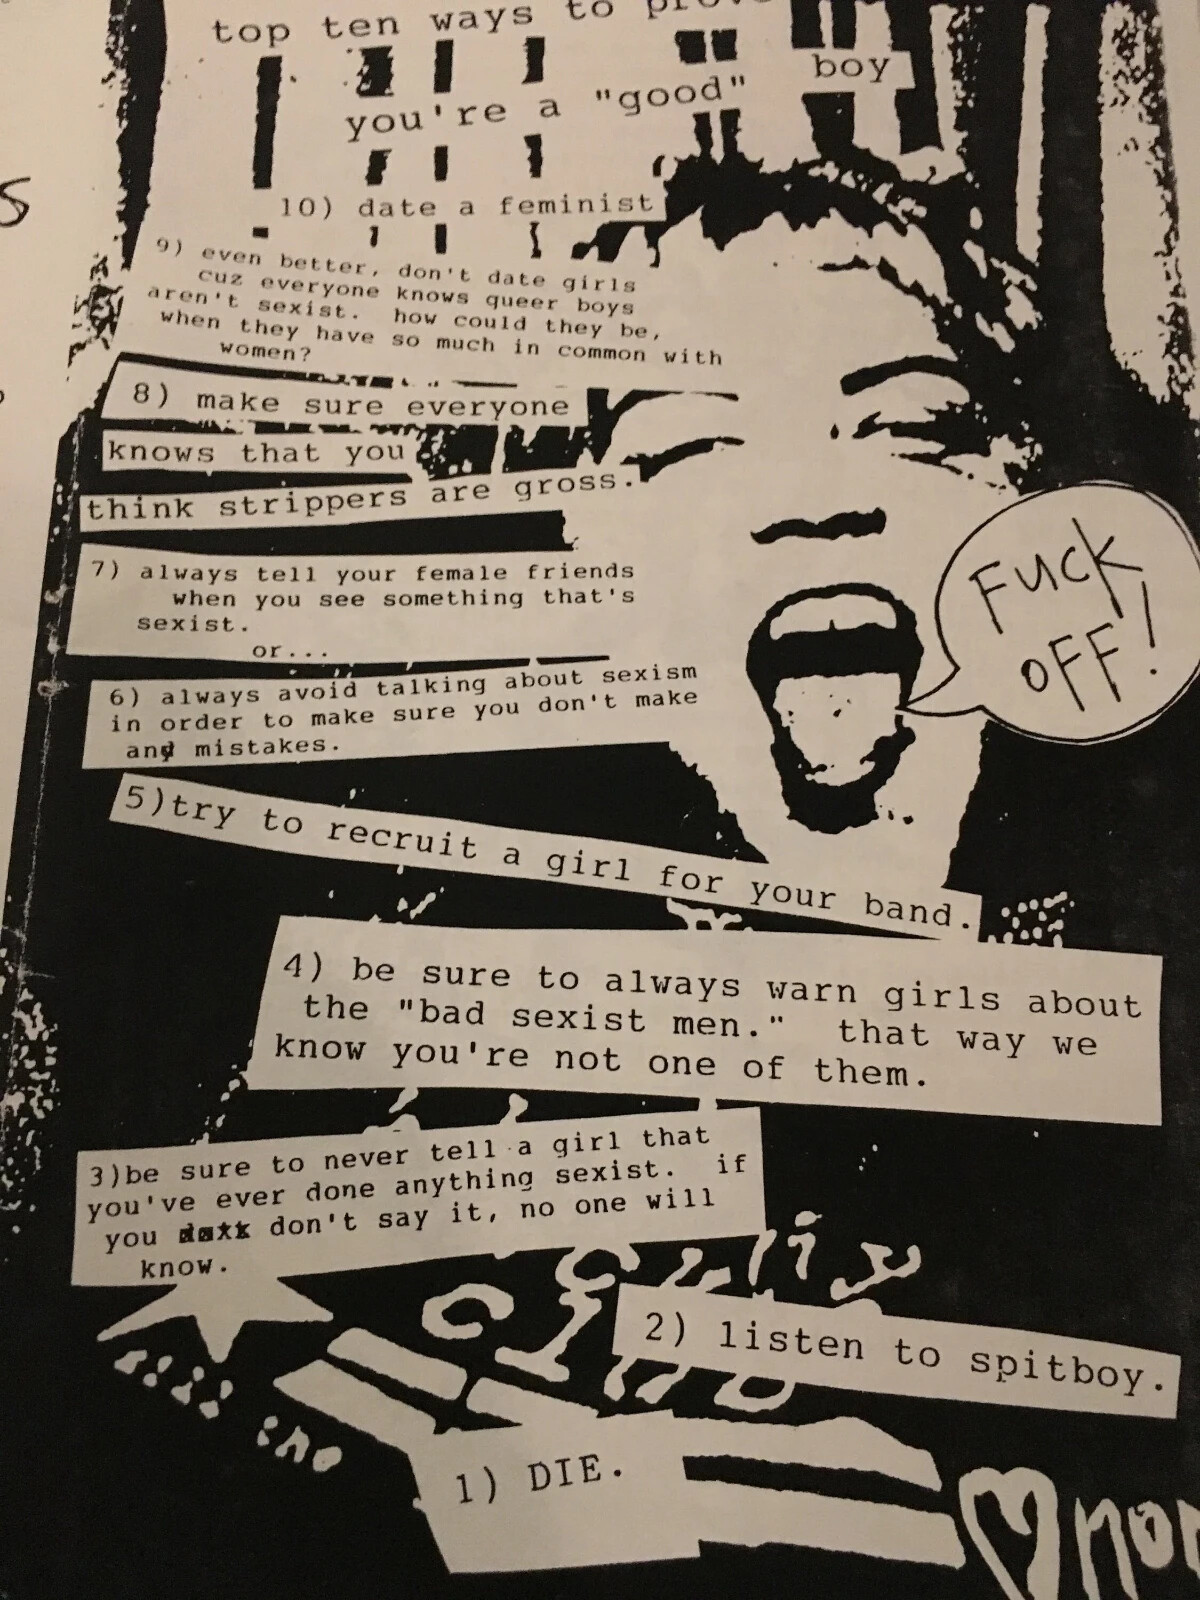 top ten ways to prove
you're a "good" boy
10) date a feminist
9) even better, don't date girls
cuz everyone knows queer boys
aren't sexist. how could they be,
when they have so much in common with
women?
8) make sure everyone
knows that you
think strippers are gross.
7) always tell your female friends
when you see something that's
sexist.
or...
6) always avoid talking about sexism
in order to make sure you don't make
any mistakes.
FUCK
OFF!
5)try to recruit a girl for your band.
4) be sure to always warn girls about
the "bad sexist men." that way we
know you're not one of them.
3)be sure to never tell a girl that
you've ever done anything sexist. if
you don't say it, no one will
know.
2) listen to spitboy.
1) DIE.